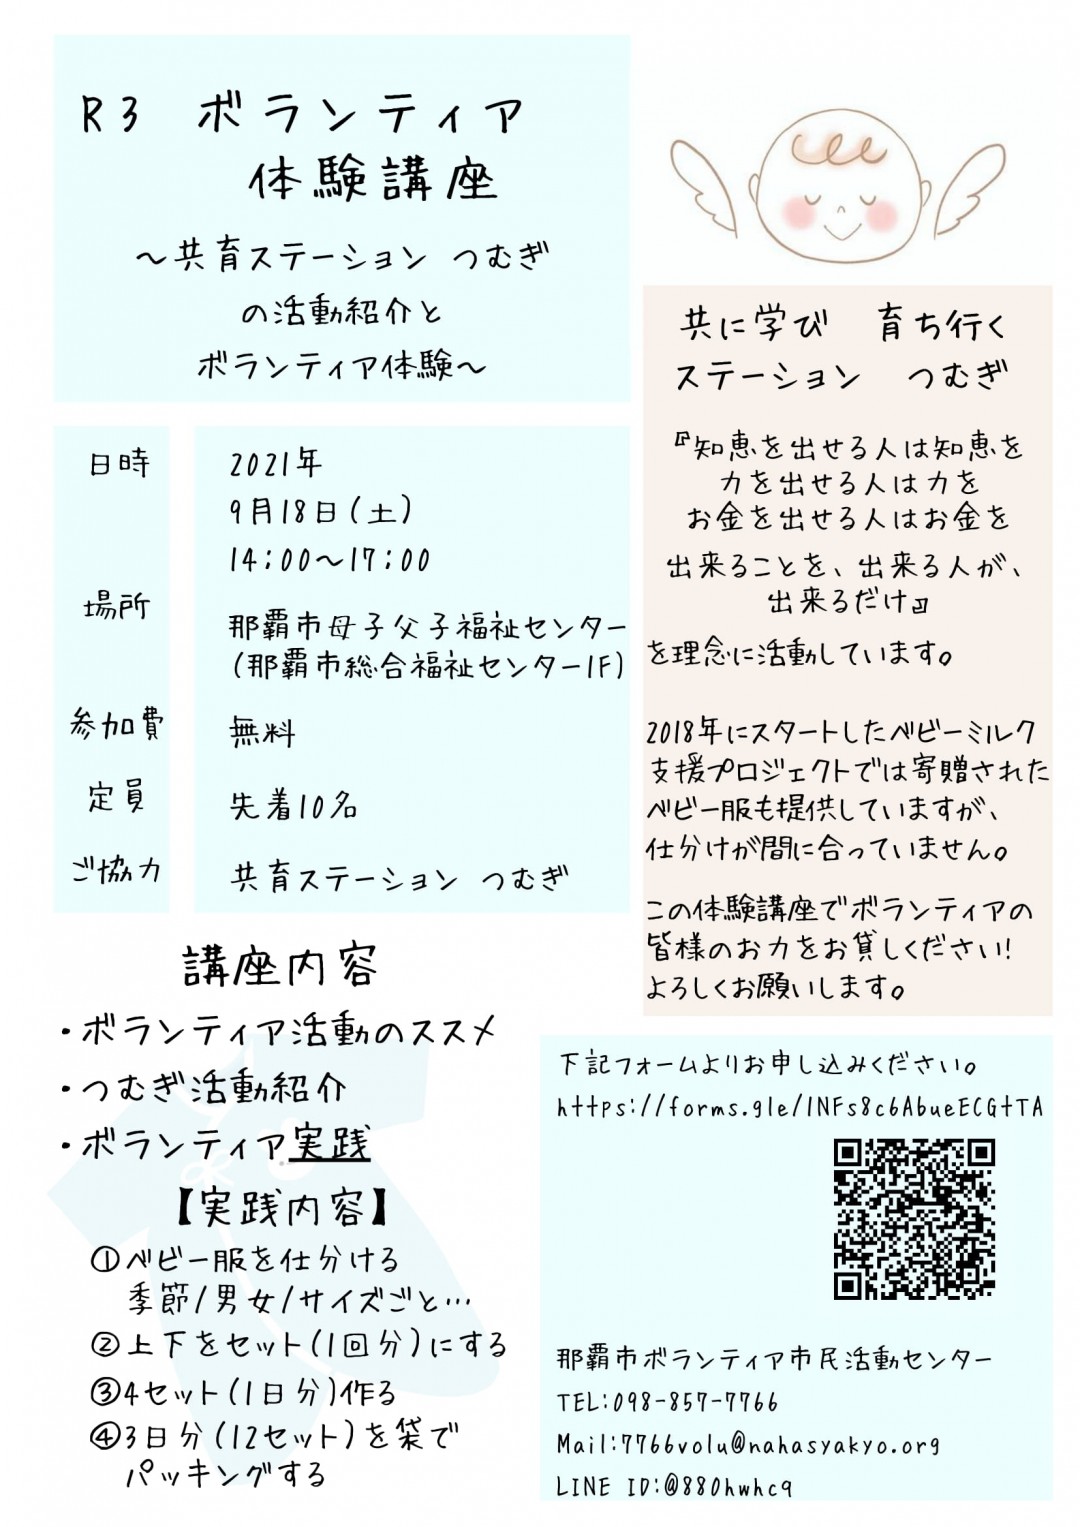 R3 ボランティア
体験講座
～共育ステーション つむぎ
の活動紹介と
ボランティア体験～
日時
2021年
9月18日(土)
14:00～17:00
場所
那覇市母子父子福祉センター
(那覇市総合福祉センター1F)
参加費
無料
定員
先着10名
ご協力
共育ステーション つむぎ
共に学び 育ち行く
ステーション つむぎ
『知恵を出せる人は知恵を
力を出せる人は力を
お金を出せる人はお金を
出来ることを、出来る人が、
出来るだけ』
を理念に活動しています。
2018年にスタートしたベビーミルク
支援プロジェクトでは寄贈された
ベビー服も提供していますが、
仕分けが間に合っていません。
この体験講座でボランティアの
皆様のお力をお貸しください!
よろしくお願いします。
講座内容
・ボランティア活動のススメ
・つむぎ活動紹介
・ボランティア実践
【実践内容】
①ベビー服を仕分ける
季節/男女/サイズごと…
②上下をセット(1回分)にする
③4セット(1日分)作る
④3日分(12セット)を袋で
パッキングする
下記フォームよりお申し込みください。
https://forms.gle/1NFs8c6AbueECGtTA
那覇市ボランティア市民活動センター
TEL:098-857-7766
Mail:7766volu@nahasyakyo.org
LINE ID:@880hwhcq